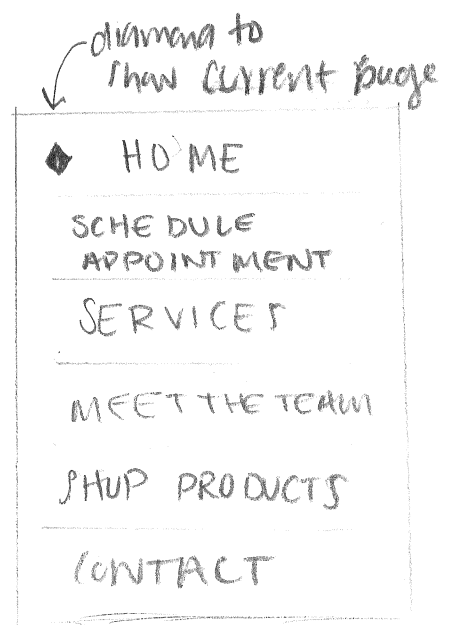 diamond to
show current page
HOME
SCHEDULE
APPOINTMENT
SERVICES
MEET THE TEAM
SHOP PRODUCTS
CONTACT